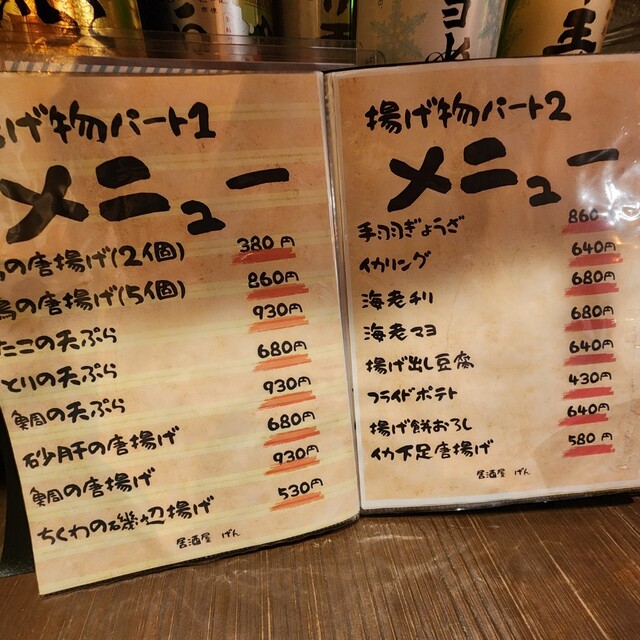 げ物パート1
メニュー
の唐揚げ(2個) 380円
鶏の唐揚げ(5個) 860円
たこの天ぷら 930円
とりの天ぷら 680円
鯛の天ぷら 930円
砂肝の唐揚げ 680円
鯛の唐揚げ 930円
ちくわの磯辺揚げ 530円
居酒屋 げん
揚げ物パート2
メニュー
手羽ぎょうざ 860
イカリング 640円
海老チリ 680円
海老マヨ 680円
揚げ出し豆腐 640円
フライドポテト 430円
揚げ餅おろし 640円
イカ下足唐揚げ 580円
居酒屋 げん